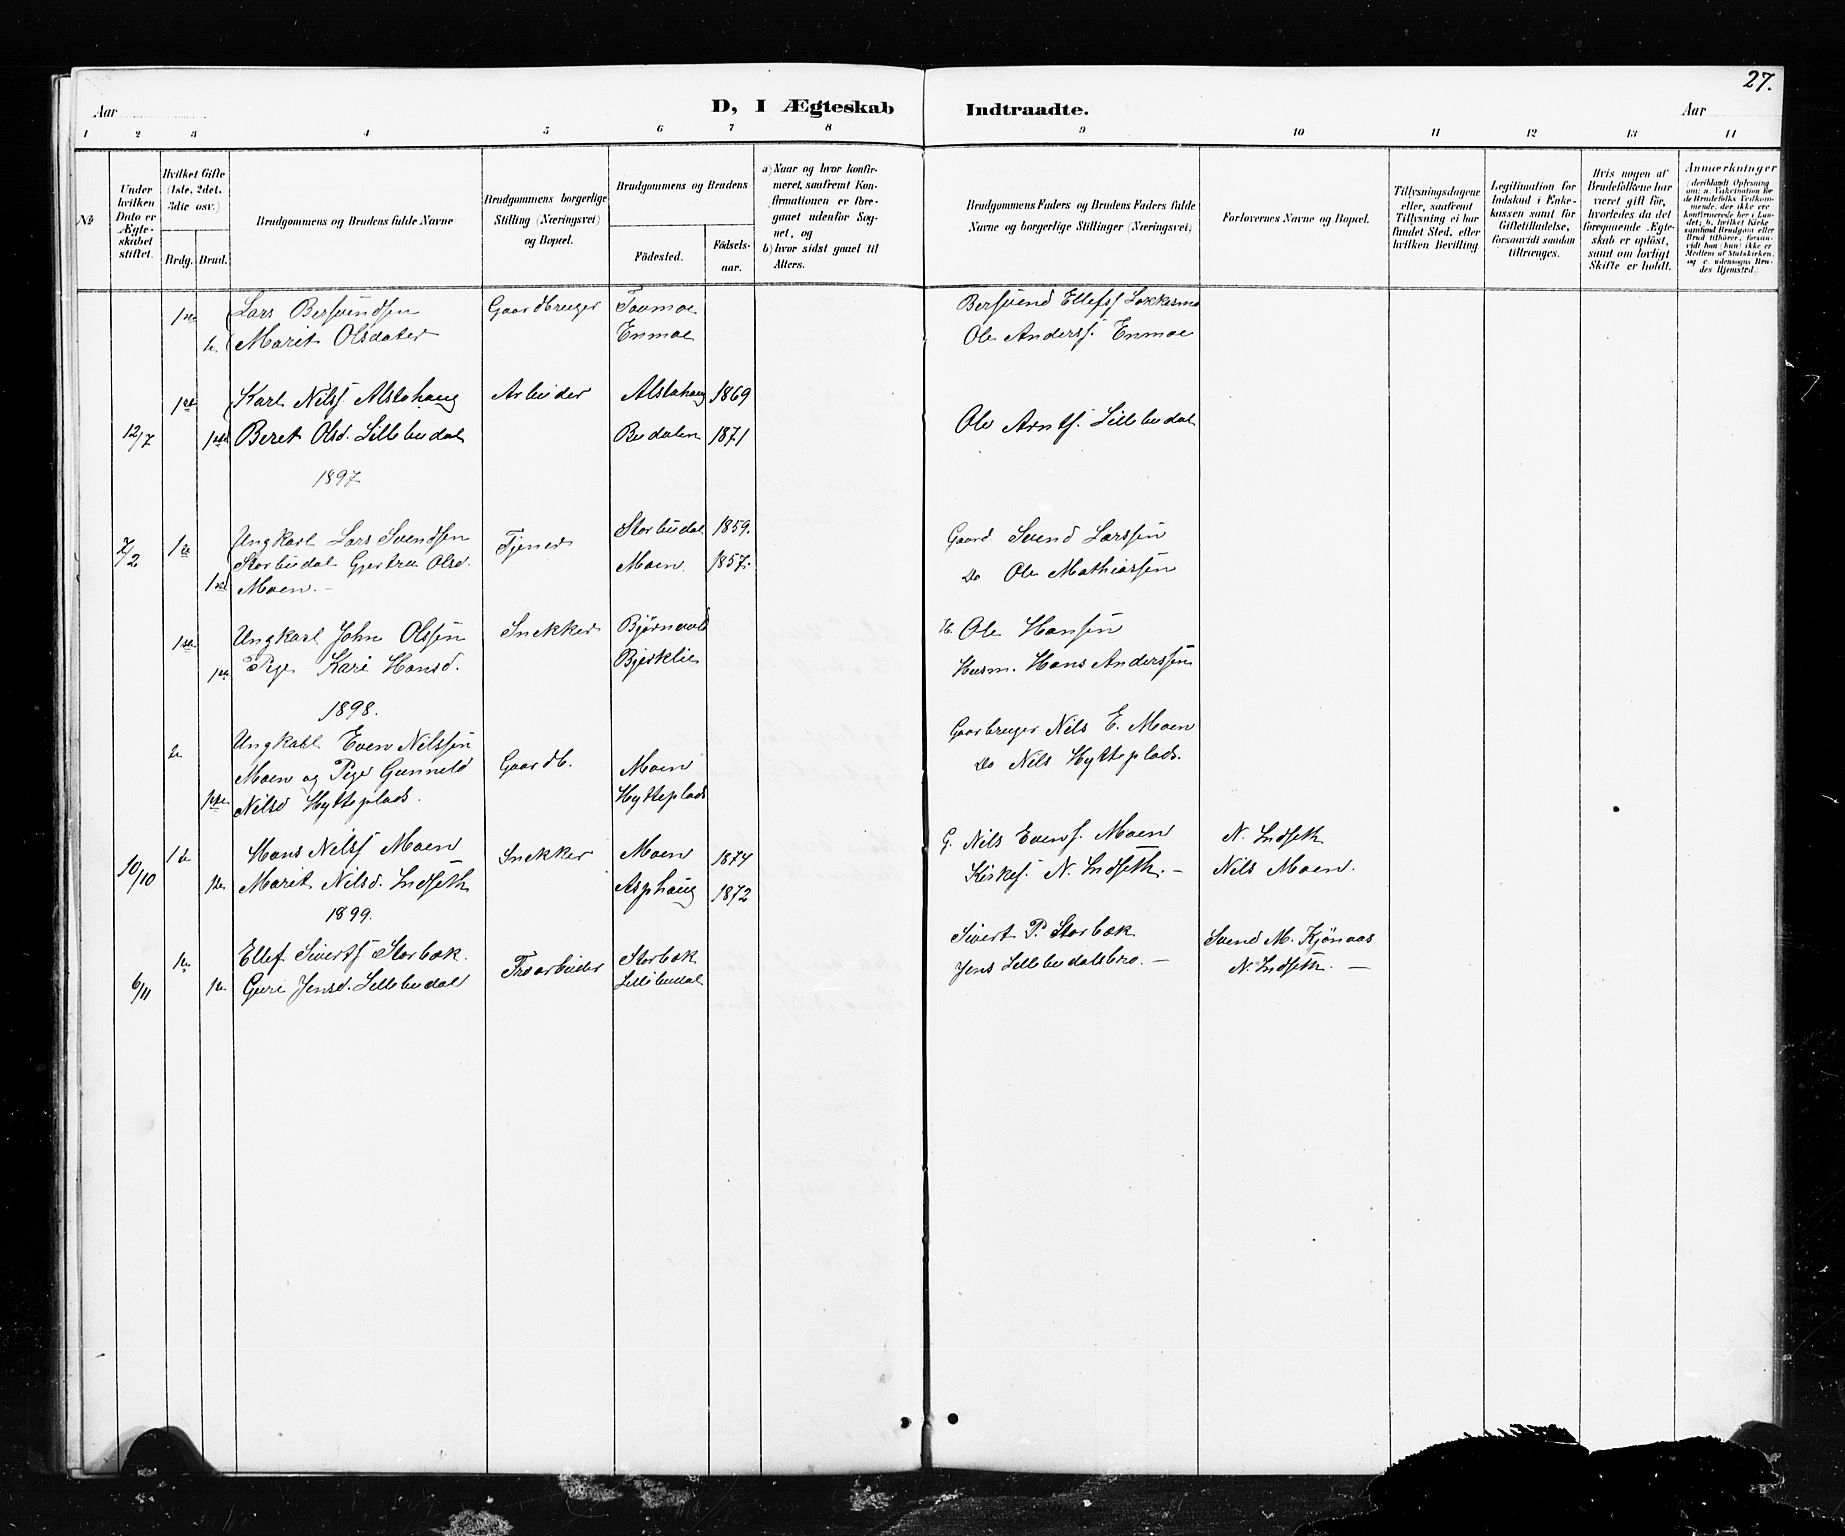 27.
Aar
D, I Ægteskab Indtraadte.
Aar
1 2 3 4 5 6 7 8 9 10 11 12 13 14
No
Under hvilken Dato er Ægteskabet stiftet.
Hvilket Gifte (1ste, 2det, 3die osv.)
Brdg. Brud.
Brudgommens og Brudens fulde Navne
Brudgommens borgerlige Stilling (Næringsvei) og Bopæl.
Brudgommens og Brudens
Födested. Födsels-aar.
a) Naar og hvor konfirmeret, saafremt Konfirmationen er foregaaet udenfor Sognet, og
b) hvor sidst gaaet til Alters.
Brudgommens Faders og Brudens Faders fulde Navne og borgerlige Stillinger (Næringsvei)
Forlovernes Navne og Bopæl.
Tillysningsdagene eller, saafremt Tillysning ei har fundet Sted, efter hvilken Bevilling.
Legitimation for Indskud i Enkekassen samt for Giftetilladelse, forsaavidt saadan tiltrænges.
Hvis nogen af Brudefolkene har været gift för, hvorledes da det foregaaende Ægteskab er oplöst, samt om lovligt Skifte er holdt.
Anmærkninger
(deriblandt Oplysning om: a. Vakcination for de Brudefolks Vedkommende, der ikke ere konfirmerede her i Landet; b. hvilket Kirkesamfund Brudgom eller Brud tilhörer, forsaavidt han (hun) ikke er Medlem af Statskirken, og c. udensogns Brudes Hjemsted.)
1ste Lars Bersvendsen Gaardbruger Toumoe Bersvend Ellefss Løkkesmo
1e Marit Olsdater Enmoe Ole Anderss. Enmoe
1ste Karl Nilss Alstahaug Arbeider Alstahaug 1869
12/7 1ste Beret Olsd. Lillebudal Budalen 1871 Ole Arnts. Lillebudal
1897
7/2 1e Ungkarl Lars Svendsen Tjener Storbudal 1859. Gaard Svend Larssen
Storbudal Gjertru Olsd. Moen. 1857. Do Ole Mathiassen
1ste Moen. -
1ste Ungkarl John Olssen Snekker H. Ole Hansen
1ste Pige Kari Hansd. Bjerklie Husm. Hans Anderssen
1898.
1e Ungkarl Even Nilssen Gaardb. Gaarbruger Nils E. Moen
Moen og Pige Gunneld Moen Do Nils Hytteplads.
1ste Nilsd Hytteplads. Hytteplads
1e Hans Nilss Moen Snekker Moen 1874 G. Nils Evens. Moen N. Indseth
10/10 1e Marit Nilsd. Indseth Asphaug 1872 Kirkes. N. Indseth. - Nils Moen.
1899.
1e Ellef Sivertss Storbæk Storbæk Sivert P. Storbæk Svend M. Kjønaas
6/11 1e Guri Jensd. Lillebudal Lillebudal Jens Lillebudalsbro. - N. Indseth. -